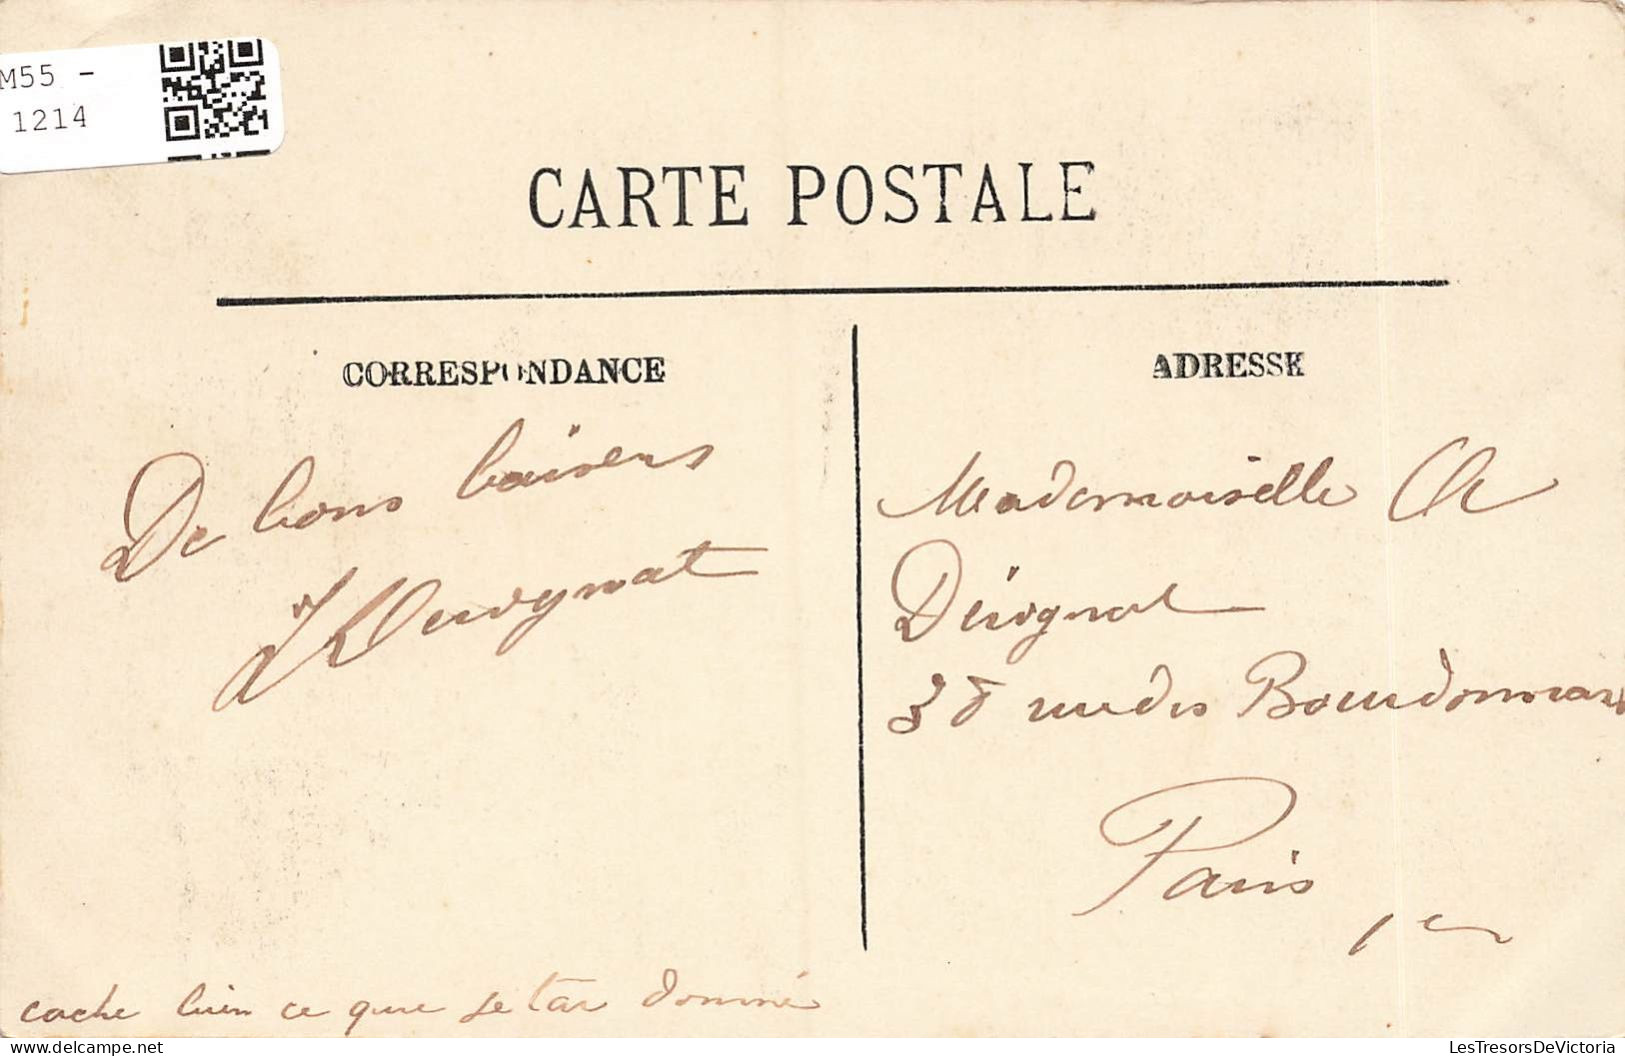 M55 -
1214
CARTE POSTALE
CORRESPONDANCE
ADRESSE
De bons baisers
Mademoiselle
38 rue des Bourdonnais
Paris
1er
cache bien ce que je t'ai donné
LesTresorsDeVictoria